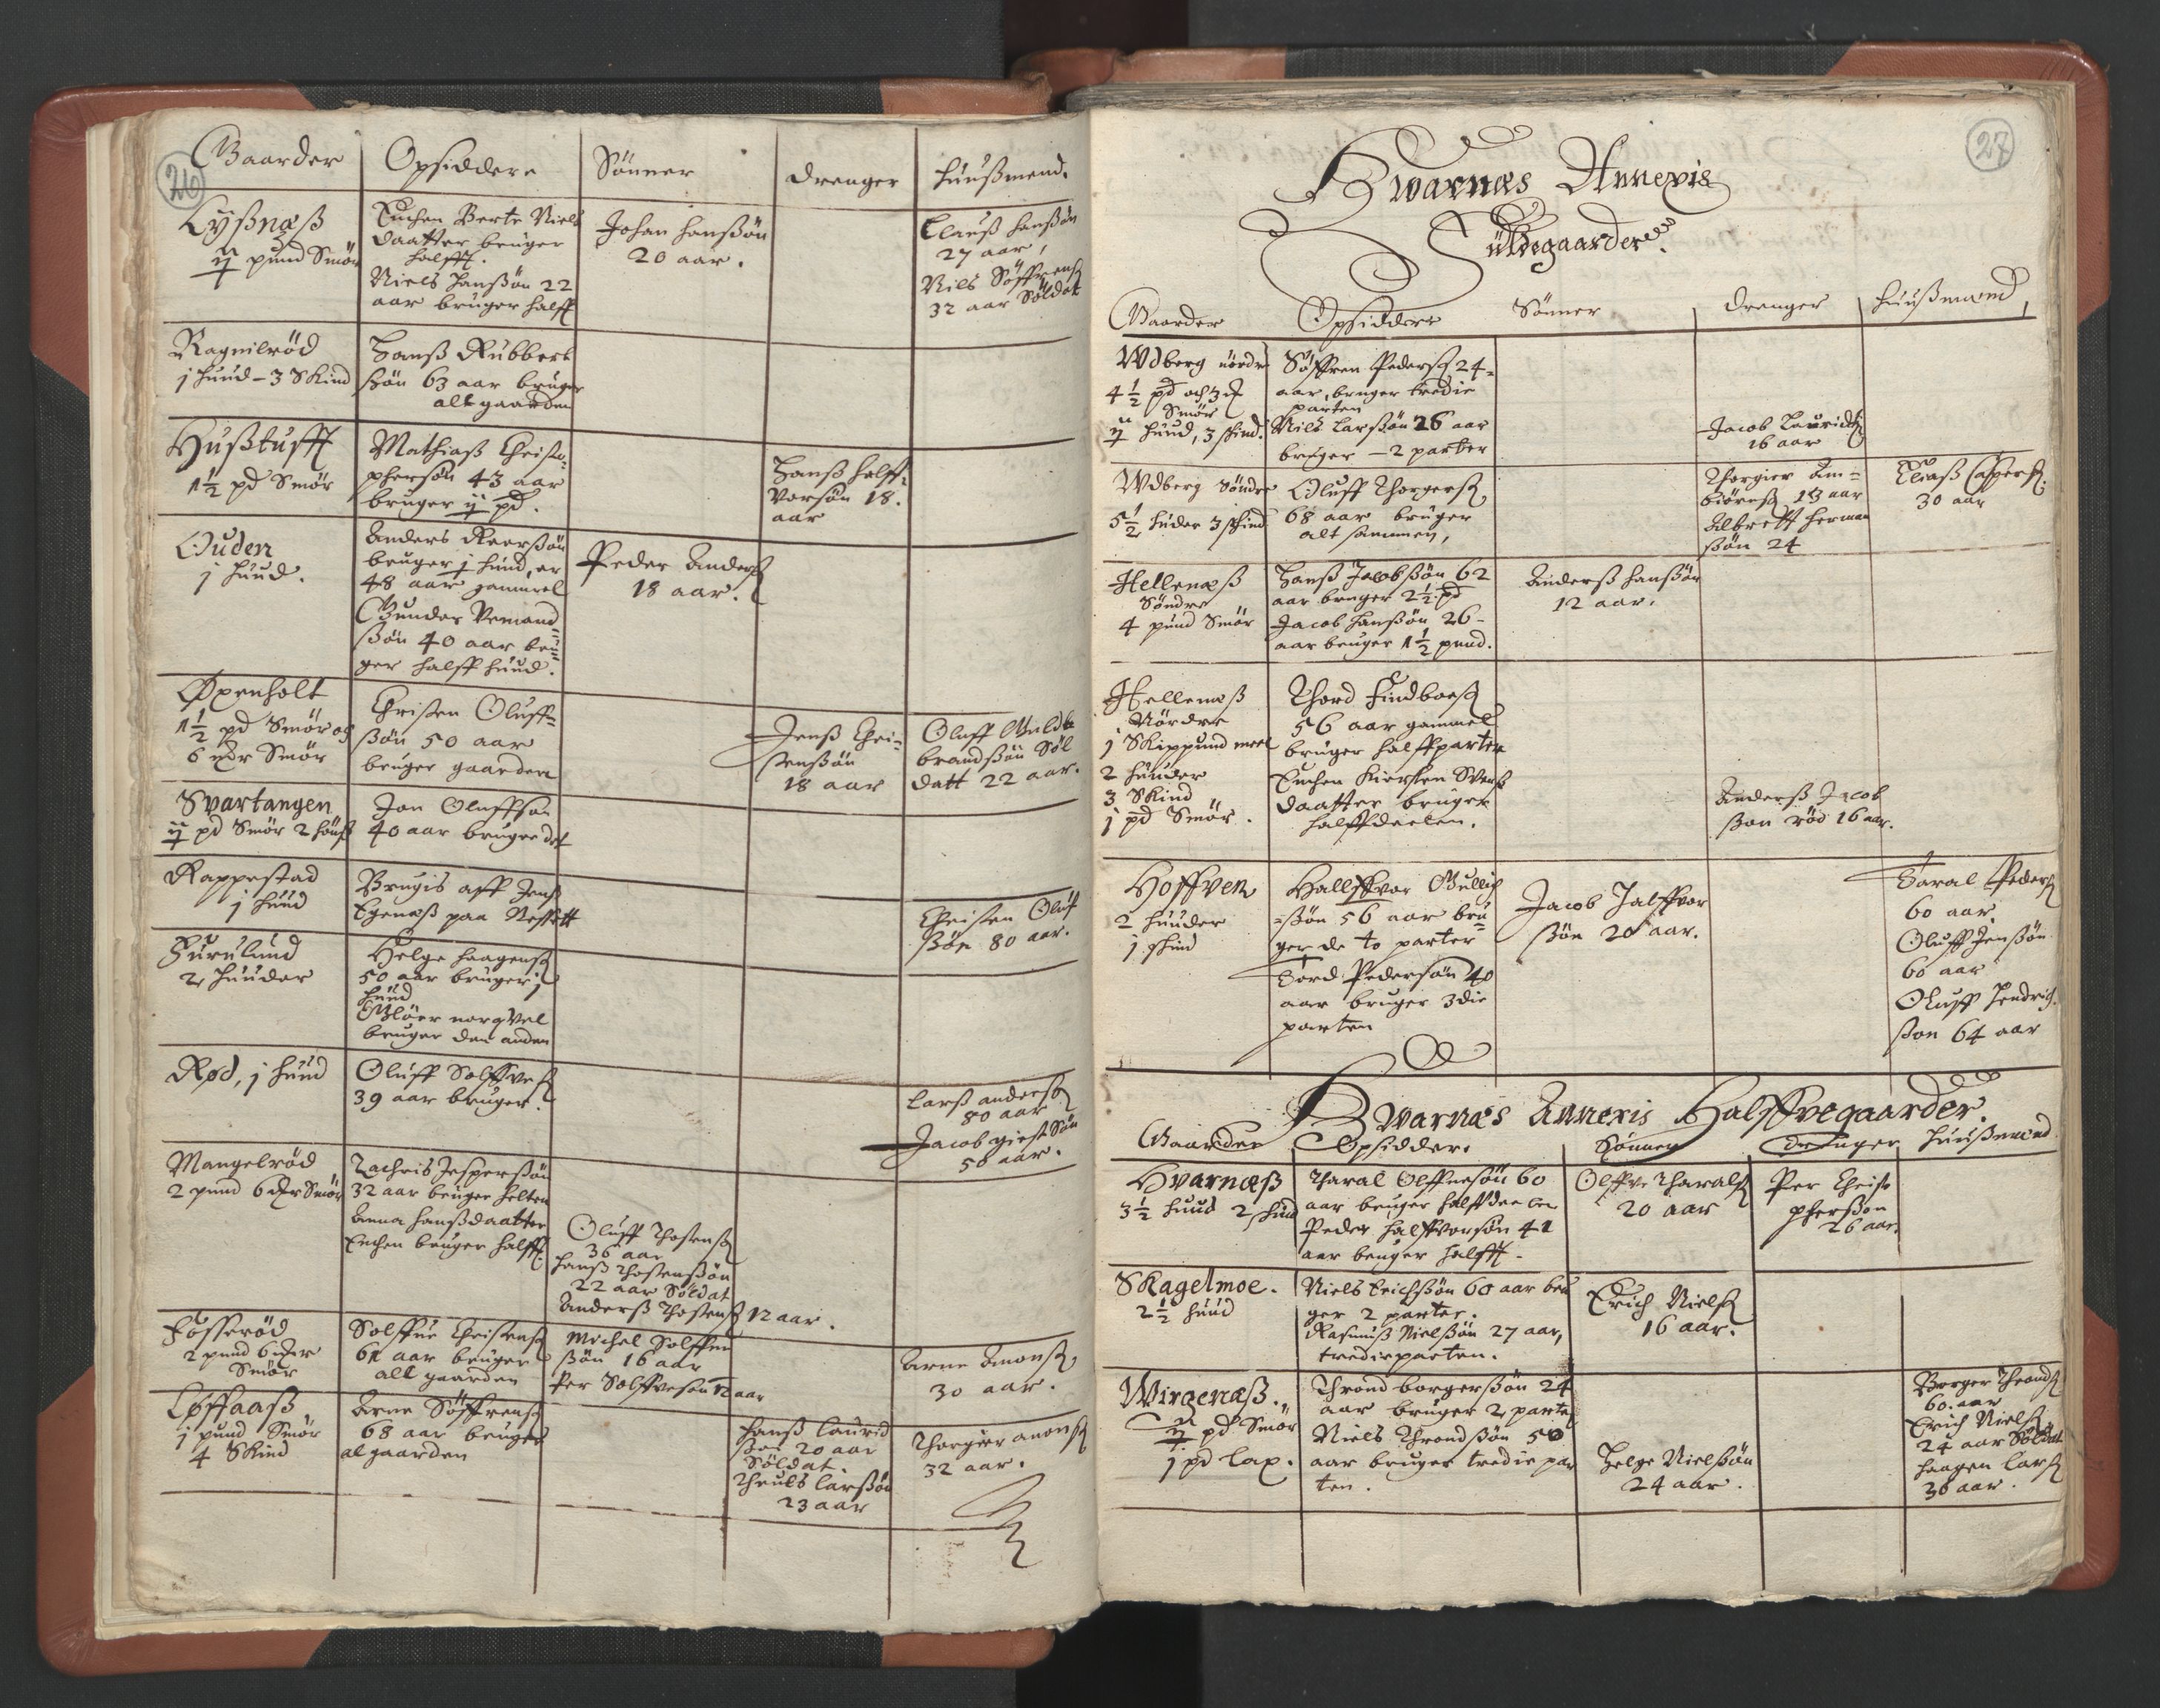 26
Gaarder
Opsiddere
Sönner
drenger
huußmend.
Lyßnæß
ij pund Smör
Enchen Berte Niels
daatter bruger
halfft.
Niels Hanßön 22
aar bruger halfft
Johan Hanßön
20 aar.
Clauß Hanßön
27 aar,
Niels Söffrenß
32 aar Söldat
Ragnilröd
j huud - 3 Skind
Hanß Rubbert
ßön 63 aar bruger
alt gaarden
Hußtufft
1½ pd Smör
Mathiaß Christo-
phersøn 43 aar
bruger ij pd.
Hanß Halff-
vorsøn 18.
aar
Ouden
j huud.
Anders Roerßön
bruger j huud, er
48 aar gammel
Gunder Vemand
ßön 40 aar bru-
ger halff huud.
Peder Anderß
18 aar.
Øxenholt
1½ pd Smör og
6 mr Smör
Christen Oluff-
ßön 50 aar
bruger gaarden
Jenß Chri-
stenßön
18 aar
Oluff Guld-
brandßön Söl
datt 22 aar.
Svartangen
ij pd Smör 2
Jon Oluffson
40 aar bruger det
Rappestad
j huud
Brugis aff Jenß
Egenæß paa Neßett
Christen Oluf
ßön 80 aar.
Furulund
2 huuder
Helge Haagenß
50 aar bruger j
huud
bruger den anden
Rød, j huud
Oluff Solffveß
39 aar bruger.
Larß Anderß
80 aar
Jacob giest Sön
50 aar.
Mangelröd
2 pund 6 mr Smör
Zachris Jesperßön
32 aar bruger helten
Anna Hanßdaatter
Enchen bruger halfft
Oluff Thostenß
36 aar
Hanß Thostenßön
22 aar Söldat
Anderß Thostenß 12 aar.
Fosseröd
2 pund 6 mr
Smör
Solffue Christenß
61 aar bruger
alt gaarden
Michel Solffue
ßön 16 aar
Per Solffvesøn 12 aar
Arne Amonß
30 aar.
Løffaaß
j pund Smör
4 Skind
Arne Söffrenß
68 aar bruger
al gaarden
Hanß Laurid
ßön 20 aar
Söldat.
Thruls Larßön
23 aar
Thorgier Amonß
32 aar.
27
Hvarnæs Annexis
Fuldegaarder.
Gaarder
Opsiddere
Sönner
drenger
huußmend
Wdberg nördre
4½ pd och 3
Smör
ij huud, 3 skind.
Söffren Pederß 24-
aar, bruger tredie
parten
Niels Larßön 26 aar
bruger - 2 parter
Jacob Lauridß
16 aar
Wdberg Söndre
5½ huder 3 skind
Oluff Thorgerß
68 aar bruger
alt sammen,
Thorgier Am-
biörnß 13 aar
Albrett Herman
ßön 24
Eliaß Casperß.
30 aar
Hellenæß
Söndre
4 pund Smör
Hanß Jacobßön 62
aar bruger 2½ pd
Jacob Hanßön 26-
aar bruger 1½ pund.
Anderß Hanßön
12 aar.
Hellenæß
Nördre
j Skippund meel
2 huuder
3 Skind
j pd Smör.
Thord Findboeß
56 aar gammel
bruger halffparten
Enchen Kiersten Svenß
daatter bruger
halffdeelen.
Anderß Jacob
ßon röd 16 aar.
Hoffven
2 huuder
j skind
Hallffvor Gullich
-ßön 56 aar bru-
ger de to parter
Tord Pedersøn 40
aar bruger 3die
parten
Jacob Halffvor
ßön 20 aar.
Taral Pederß
60 aar.
Oluff Jenßön
60 aar
Oluff Hendrich
ßon 64 aar
Hvarnæs Annexis Halffvegaarder.
Gaarder
Opsidder.
Sönner
drenger
huußmend
Hvarnæß
3½ huud 2 skind
Tharal Olffuesön 60
aar bruger halffdeelen
Peder Halffvorsön 41
aar bruger halfft.
Olffve Tharalß
20 aar
Per Christo
pherßon
26 aar.
Skagelmoe.
2½ huud
Niels Erichßön 60 aar bru
ger 2 parter.
Rasmuß Nielßön 27 aar,
tredieparten.
Erich Nielß
16 aar.
Wirgenæß.
ij pd Smör
j pd Lax.
Thrond Borgerßön 24
aar bruger 2 parte
Niels Throndßön 50
aar bruger tredie par
ten.
Helge Nielßön
24 aar.
Borger Throndß
60. aar
Erich Nielß
24 aar Söldat
Haagen Larß
36 aar.